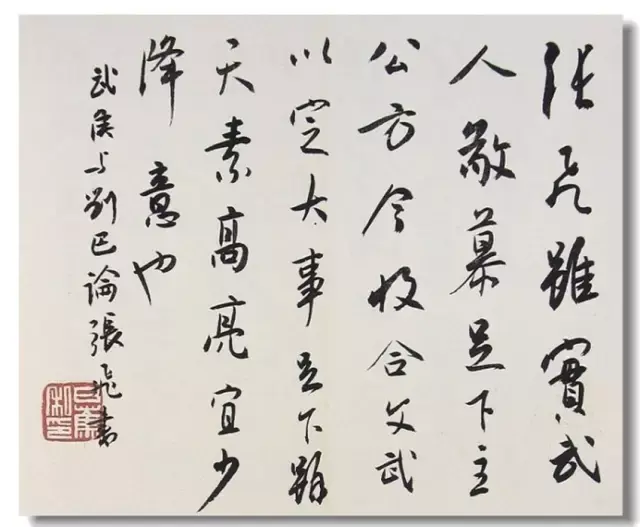 張飛雖實武
人敬慕足下主
公方今收合文武
以定大事足下雖
天素高亮宜少
降意也
武侯与劉巴論張飛書